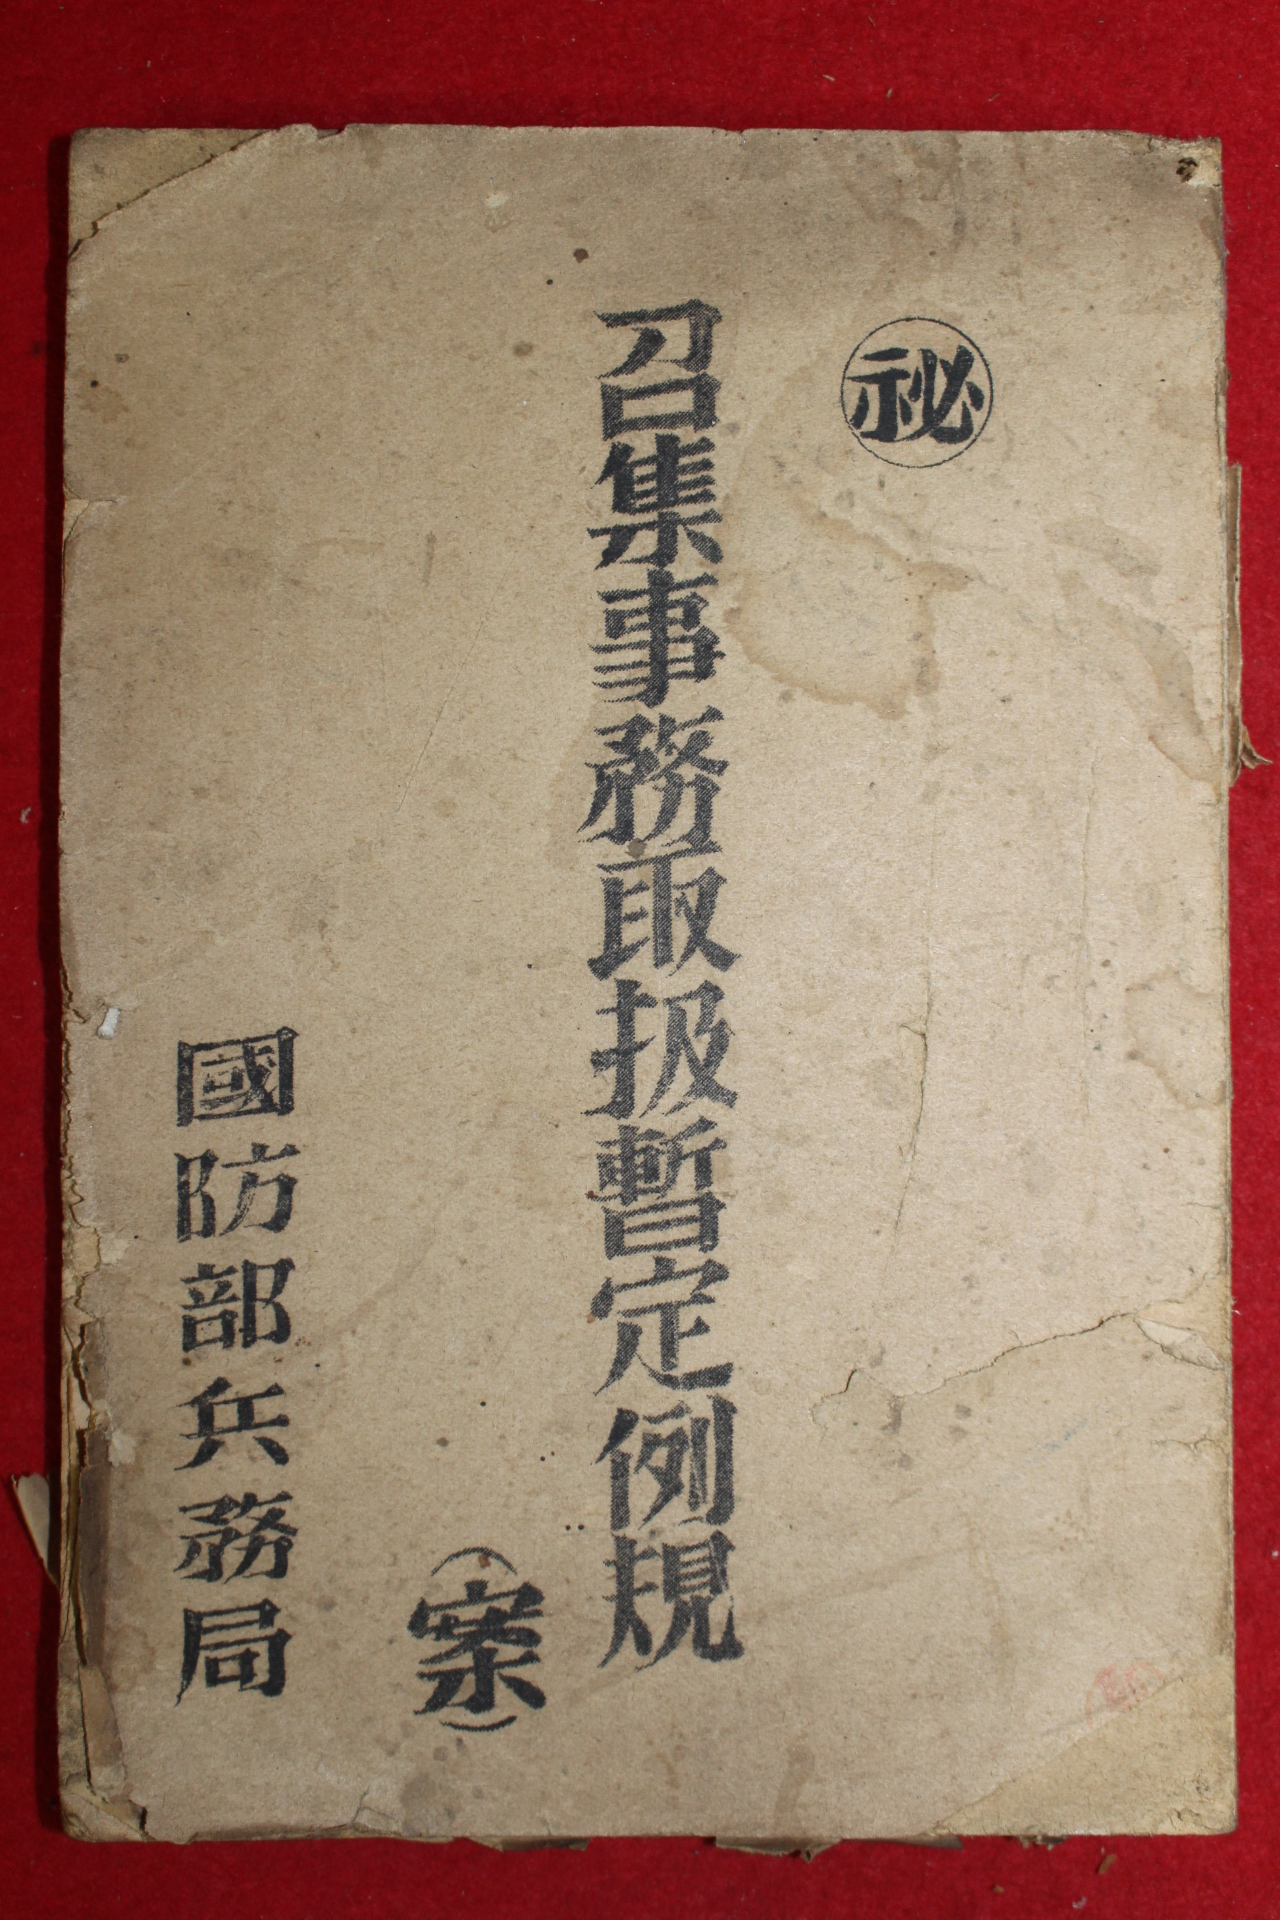 祕
召集事務取扱暫定例規
(案)
國防部兵務局